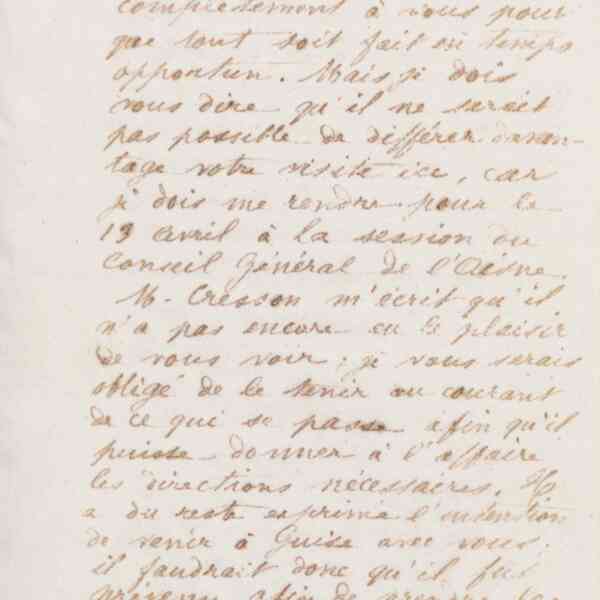 complètement à vous pour
que tout soit fait en temps
opportun. Mais je dois
vous dire qu'il ne serait
pas possible de différer davan-
tage votre visite ici, car
je dois me rendre pour le
19 avril à la session du
Conseil Général de l'Aisne.
M. Cresson m'écrit qu'il
n'a pas encore eu le plaisir
de vous voir; je vous serais
obligé de le tenir au courant
de ce qui se passe afin qu'il
puisse donner à l'affaire
les directions nécessaires. Il
a du reste exprimé l'intention
de venir à Guise avec vous.
il faudrait donc qu'il fut
prévenu afin de prendre